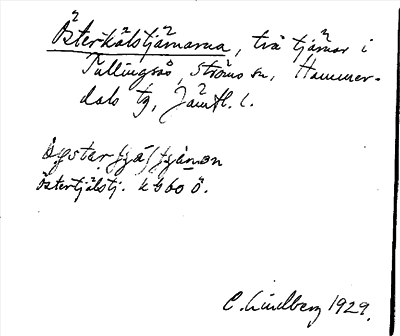 Österkälstjärnarna, två tjärnar i
Tullingsås, Ströms sn, Hammer-
dals tg, Jämtl. l.
Östertjälstj. k 660 ö.
C. Lindberg 1929.